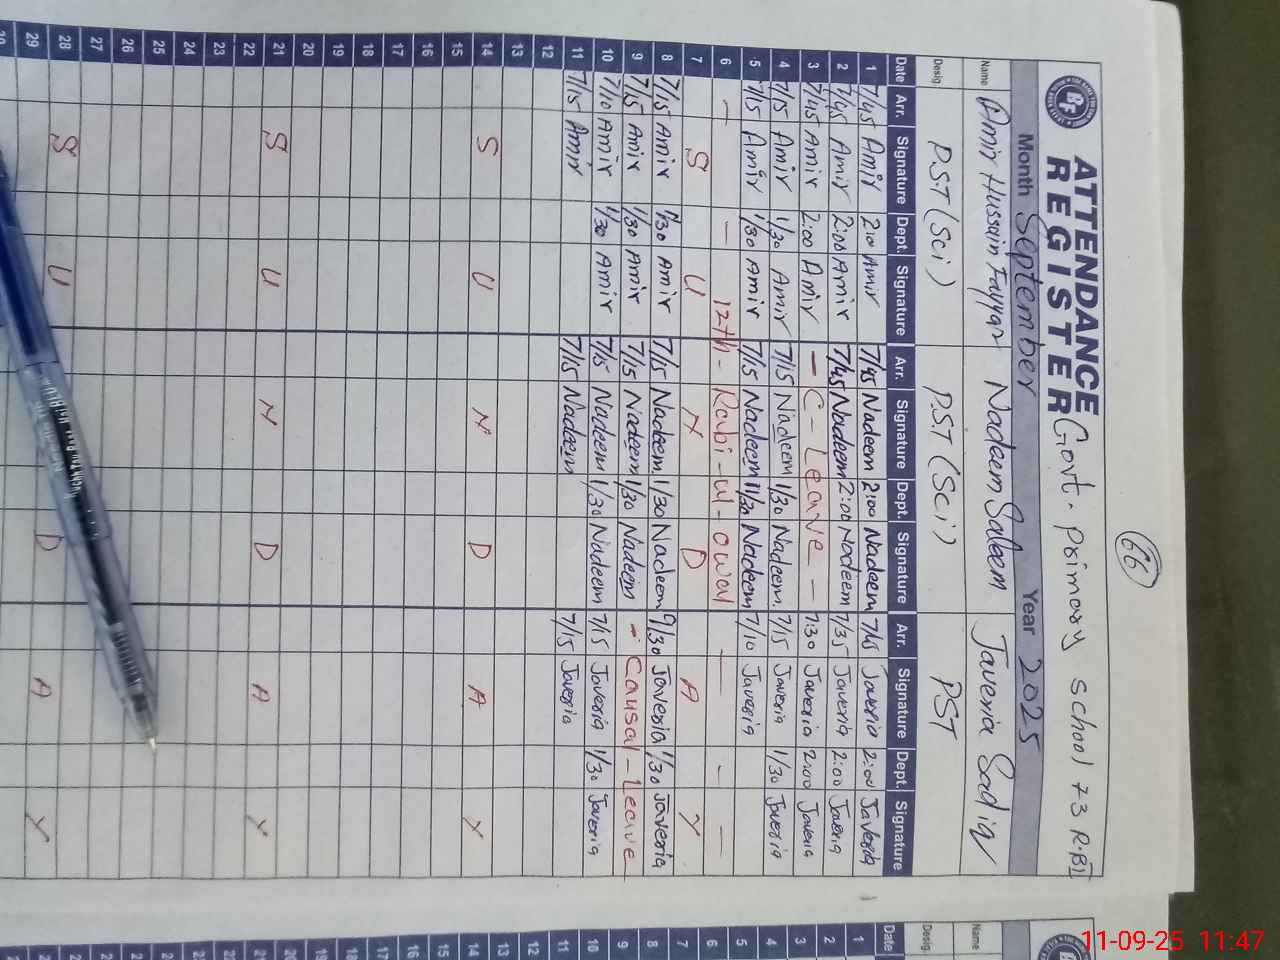 66
ATTENDANCE REGISTER Govt. Primary School 73 R.B I
BF
Month September Year 2025
Name Amir Hussain Fayyaz Nadeem Saleem Javeria Sadiq
Desig. P.S.T (Sci) P.S.T (Sci) PST
Date Arr. Signature Dept. Signature Arr. Signature Dept. Signature Arr. Signature Dept. Signature
1 7/45 Amir 2:00 Amir 7/45 Nadeem 2:00 Nadeem 7/45 Javeria 2:00 Javeria
2 7/45 Amir 2:00 Amir 7/45 Nadeem 2:00 Nadeem 7/35 Javeria 2:00 Javeria
3 7/45 Amir 2:00 Amir — C - Leave — 7:30 Javeria 2:00 Javeria
4 7/15 Amir 1/30 Amir 7/15 Nadeem 1/30 Nadeem. 7/15 Javeria 1/30 Javeria
5 7/15 Amir 1/30 Amir 7/15 Nadeem 1/30 Nadeem 7/10 Javeria
6 — — 12th - Rabi - ul - awal — - —
7 S U N D A Y
8 7/15 Amir 1/30 Amir 7/15 Nadeem 1/30 Nadeem 9/30 Javeria 1/30 Javeria
9 7/15 Amir 1/30 Amir 7/15 Nadeem 1/30 Nadeem - Causal - Leave
10 7/10 Amir 1/30 Amir 7/15 Nadeem 1/30 Nadeem 7/15 Javeria 1/30 Javeria
11 7/15 Amir 7/15 Nadeem 7/15 Javeria
12
13
14 S U N D A Y
15
16
17
18
19
20
21 S U N D A Y
22
23
24
25
26
27
28 S U N D A Y
29
Name
Desig.
Date
1
2
3
4
5
6
7
8
9
10
11
12
13
14
15
16
17
18
19
20
21
22
23
24
25
26
27
11-09-25 11:47